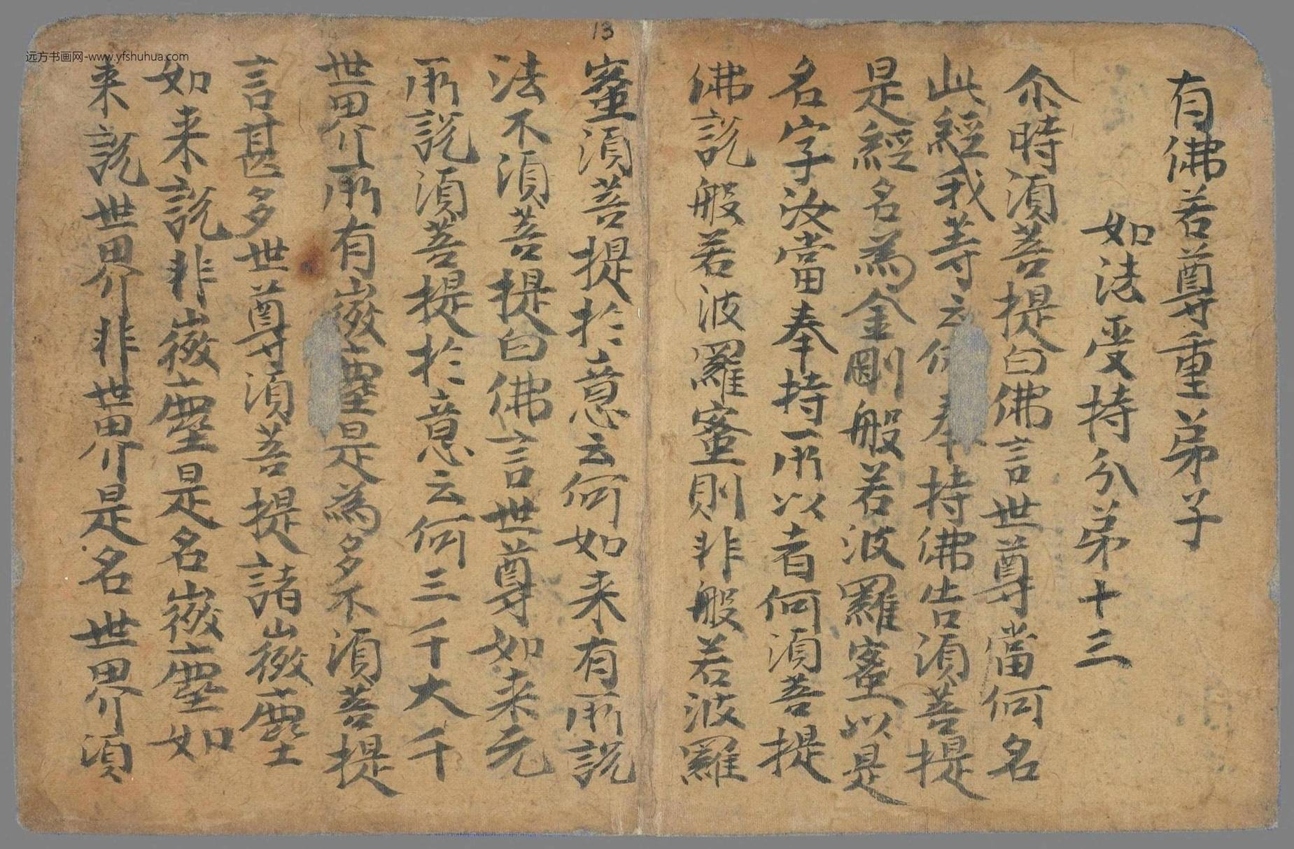 有佛若尊重弟子
如法受持分弟十三
尒時須菩提白佛言世尊當何名
此經我等云何奉持佛告須菩提
是經名為金剛般若波羅蜜以是
名字汝當奉持所以者何須菩提
佛說般若波羅蜜則非般若波羅
蜜須菩提於意云何如来有所說
法不須菩提白佛言世尊如来无
所說須菩提於意云何三千大千
世界所有微塵是為多不須菩提
言甚多世尊須菩提諸微塵
如来說非微塵是名微塵如
来說世界非世界是名世界須
13
远方书画网-www.yfshuhua.com